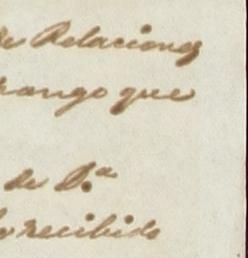 de Relaciones
rango que
de D.ª
recibido